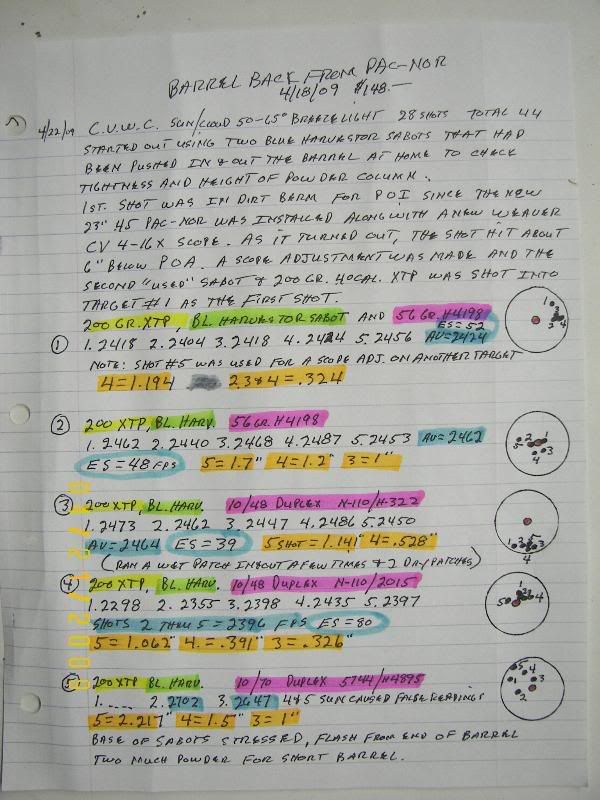 BARREL BACK FROM PAC-NOR
4/18/09 $148.—
4/22/09 C.V.W.C. SUN/CLOUD 50-65° BREEZE LIGHT 28 SHOTS TOTAL 44
STARTED OUT USING TWO BLUE HARVESTOR SABOTS THAT HAD
BEEN PUSHED IN & OUT THE BARREL AT HOME TO CHECK
TIGHTNESS AND HEIGHT OF POWDER COLUMN.
1ST. SHOT WAS IN DIRT BERM FOR POI SINCE THE NEW
23" .45 PAC-NOR WAS INSTALLED ALONG WITH A NEW WEAVER
CV 4-16X SCOPE. AS IT TURNED OUT, THE SHOT HIT ABOUT
6" BELOW POA. A SCOPE ADJUSTMENT WAS MADE AND THE
SECOND "USED" SABOT & 200 GR. 40CAL. XTP WAS SHOT INTO
TARGET #1 AS THE FIRST SHOT.
200 GR. XTP, BL. HARVESTOR SABOT AND 56 GR. H4198
ES=52
1 1. 2418 2. 2404 3. 2418 4. 2424 5. 2456 AV=2424
NOTE: SHOT #5 WAS USED FOR A SCOPE ADJ. ON ANOTHER TARGET
4=1.194 2,3&4=.324
1
3
2 4
2 200 XTP, BL. HARV. 56 GR. H4198
1. 2462 2. 2440 3. 2468 4. 2487 5. 2453 AV=2462
ES=48 FPS 5=1.7" 4=1.2" 3=1"
5 2 1
3
4
3 200 XTP, BL. HARV. 10/48 DUPLEX N-110/H-322
1. 2473 2. 2462 3. 2447 4. 2486 5. 2450
AV=2464 ES=39 5 SHOT=1.141" 4=.528"
(RAN A WET PATCH IN & OUT A FEW TIMES & 2 DRY PATCHES)
1 3 5 2
4
4 200 XTP, BL. HARV. 10/48 DUPLEX N-110/2015
1. 2298 2. 2355 3. 2398 4. 2435 5. 2397
SHOTS 2 THRU 5=2396 FPS ES=80
5=1.062" 4.=.391" 3=.326"
4
5 200 XTP BL. HARV. 10/70 DUPLEX 5744/H4895
1. .... 2. 2702 3. 2647 4&5 SUN CAUSED FALSE READINGS
5=2.217" 4=1.5" 3=1"
BASE OF SABOTS STRESSED, FLASH FROM END OF BARREL
TWO MUCH POWDER FOR SHORT BARREL.
5 4
1 3
2